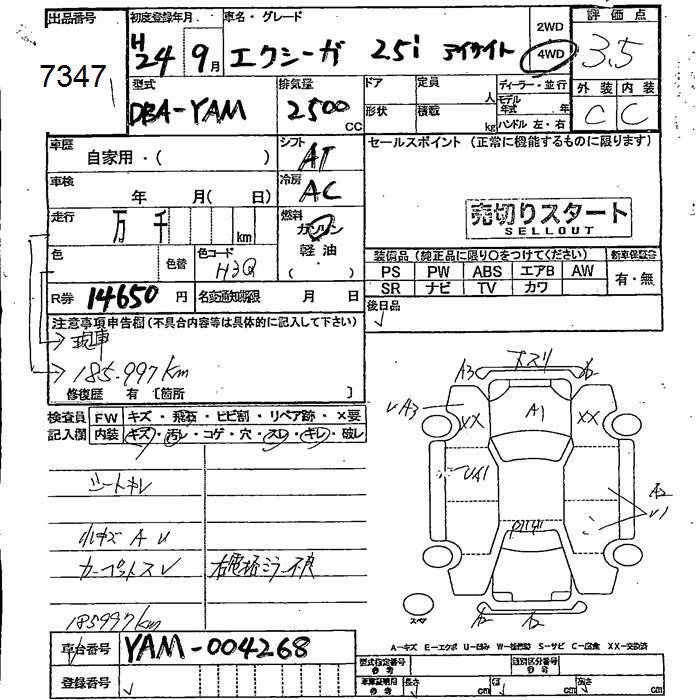 出品番号
7347
初度登録年月
H24 9月
車名・グレード
エクシーガ 2.5i アイサイト
2WD
4WD
評価点
3.5
型式
DBA-YAM
排気量
2500
CC
ドア
形状
定員
人
積載
kg
ディーラー・並行
モデル年式 年
ハンドル 左・右
外装 内装
C C
車歴
自家用・( )
シフト
AT
冷房
AC
セールスポイント (正常に機能するものに限ります)
売切りスタート
SELLOUT
車検
年 月( 日)
走行
万 千 km
燃料
ガソリン
軽油
( )
色
色替
色コード
H3Q
装備品 (純正品に限り〇をつけてください)
新車保証書
PS PW ABS エアB AW
SR ナビ TV カワ
有・無
R券 14650 円
名変通知期限 月 日
後日品
注意事項申告欄 (不具合内容等は具体的に記入して下さい)
185.997km
修復歴 有 〔箇所 〕
検査員記入欄
FW キズ・飛石・ヒビ割・リペア跡・×要
内装 キズ・汚レ・コゲ・穴・スレ・キレ・破レ
シートキレ
小キズ A U
カーペットスレ
右電格ミラー不良
185997km
車台番号
YAM-004268
登録番号
A3
A2
UA3
XX
A1
XX
UA1
A2
U1
A2
A2
A-キズ E-エクボ U-凹み W-補修跡 S-サビ C-腐食 XX-交換済
型式指定番号
参考
類別区分番号
参考
車庫証明用
参考
長さ cm
巾 cm
高さ cm